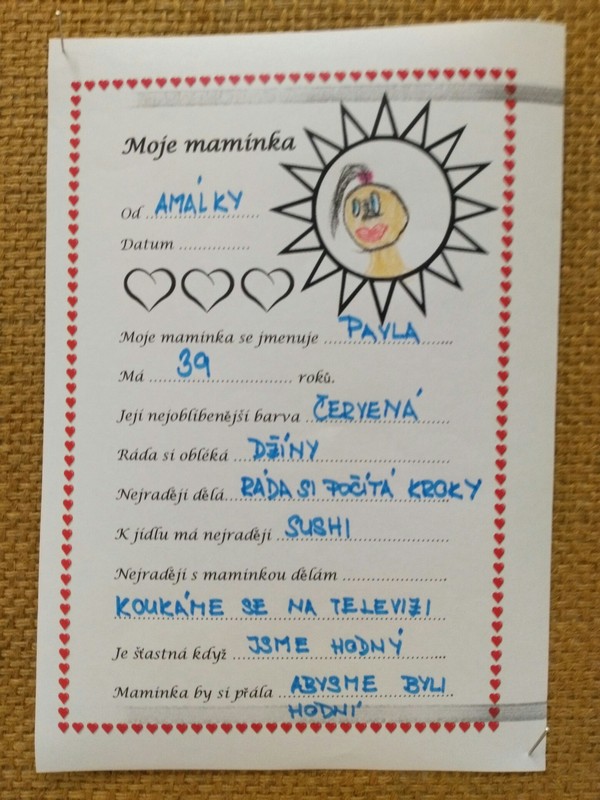 Moje maminka
Od AMÁLKY
Datum
Moje maminka se jmenuje PAVLA
Má 39 roků.
Její nejoblíbenější barva ČERVENÁ
Ráda si obléká DŽÍNY
Nejraději dělá RÁDA SI POČÍTÁ KROKY
K jídlu má nejraději SUSHI
Nejraději s maminkou dělám
KOUKÁME SE NA TELEVIZI
Je šťastná když JSME HODNÝ
Maminka by si přála ABYSME BYLI
HODNÍ